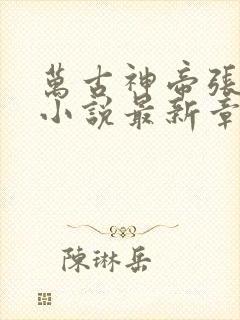 萬古神帝張
小說最新章
陳琳岳